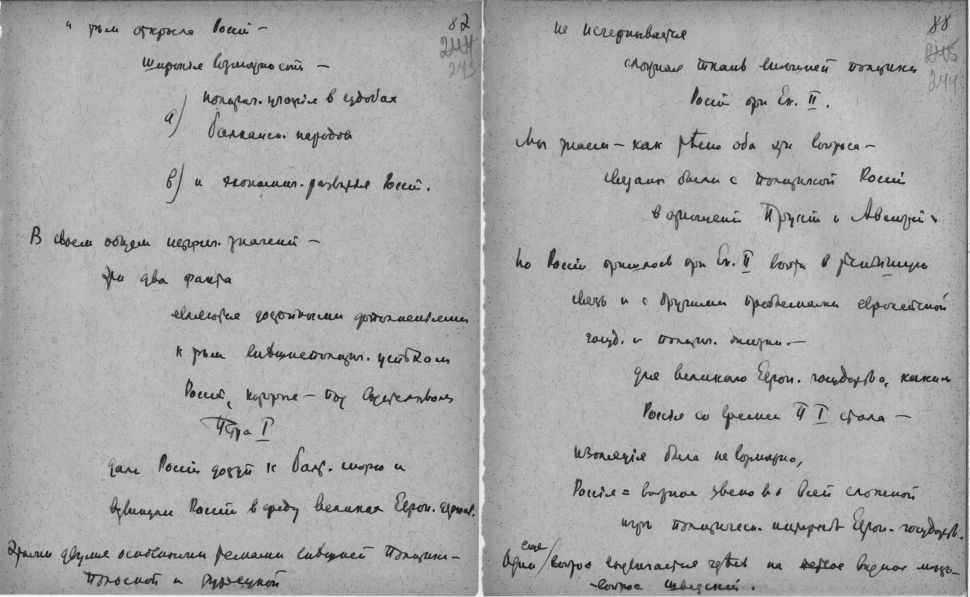 82
и тѣм открыла Россіи –
широкія возможности –
а) политич. участія в судьбах
балканск. народов
в) и экономич. развитія Россіи.
В своем общем историч. значеніи –
эти два факта
являются достойными дополненіями
к тѣм внѣшнеполитич. успѣхам
Россіи, которые – под водительством
Петра I
дали Россіи доступ к Балт. морю и
вдвинули Россію в среду великих Европ. держав.
Этими двумя основными темами внѣшней политики –
польской и турецкой
88
не исчерпывается
сложная ткань внѣшней политики
Россіи при Ек. II.
Мы знаем – как тѣсно оба эти вопроса –
связаны были с политикой Россіи
в отношеніи Пруссіи и Австріи.
Но Россіи пришлось при Ек. II войти в тѣснѣйшую
связь и с другими проблемами европейской
госуд. и политич. жизни. –
Для великаго Европ. государства, каким
Россія со времени П I стала –
изоляція была невозможна,
Россія = важное звено во всей сложной
игрѣ политическ. интересов Европ. государств.
Один еще вопрос выдвигается здѣсь на видное мѣсто –
вопрос шведскій.